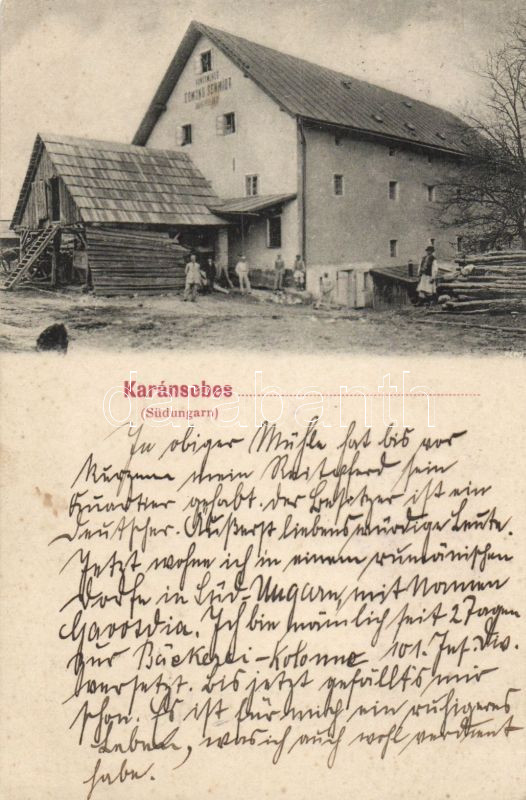 KUNSTMÜHLE
EDMUND SCHMIDT
Karánsebes
(Südungarn)
darabanth
In obiger Mühle hat bis vor
kurzem mein Reitpferd sein
Quartier gehabt. Der Besitzer ist ein
Deutscher. Äußerst liebenswürdige Leute.
Jetzt wohne ich in einem rumänischen
Dorfe in Süd-Ungarn, mit Namen
Gavosdia. Ich bin nämlich seit 2 Tagen
zur Bäckerei-Kolonne 101. Inf. Div.
versetzt. Bis jetzt gefällt's mir
schon. Es ist für mich ein ruhigeres
Leben, was ich auch wohl verdient
habe.